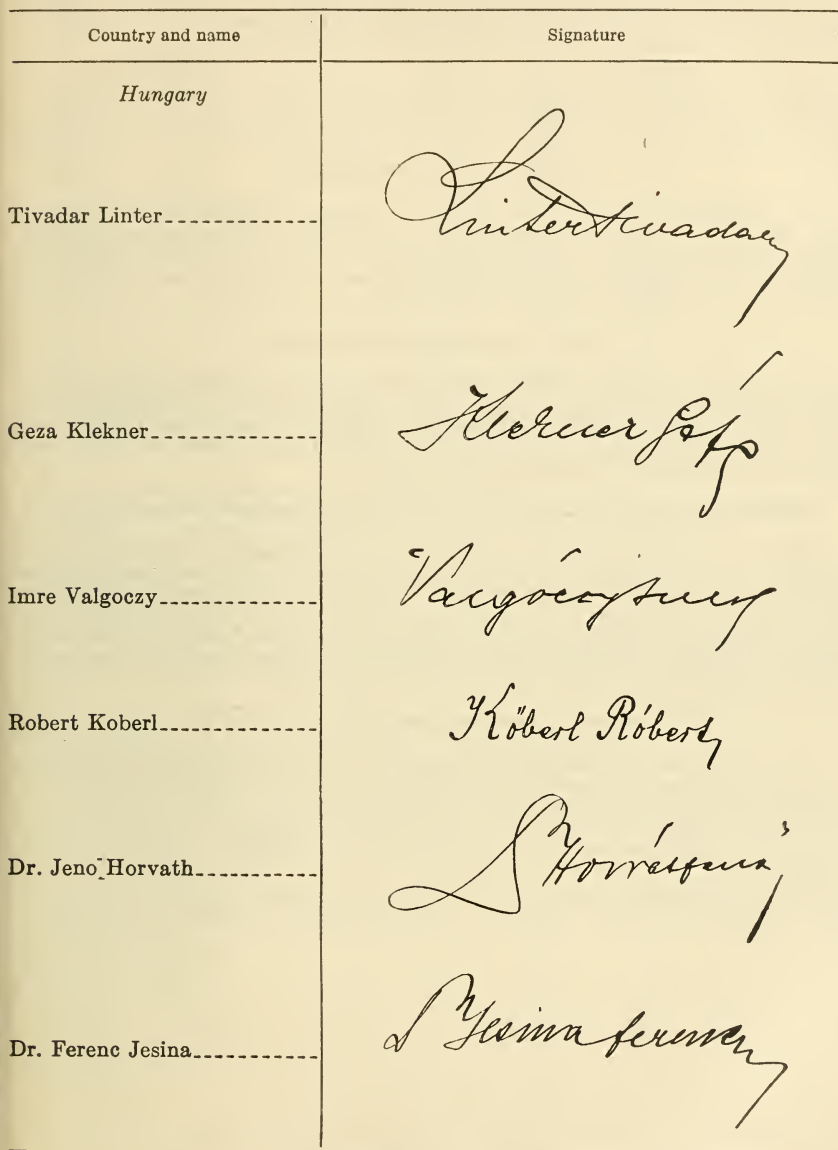 Country and name
Signature
Hungary
Tivadar Linter
Linter Tivadar
Geza Klekner
Klekner Géza
Imre Valgoczy
Valgóczy Imre
Robert Koberl
Kőberl Róbert
Dr. Jeno Horvath
Dr Horváth Jenő
Dr. Ferenc Jesina
Dr Jesina Ferenc